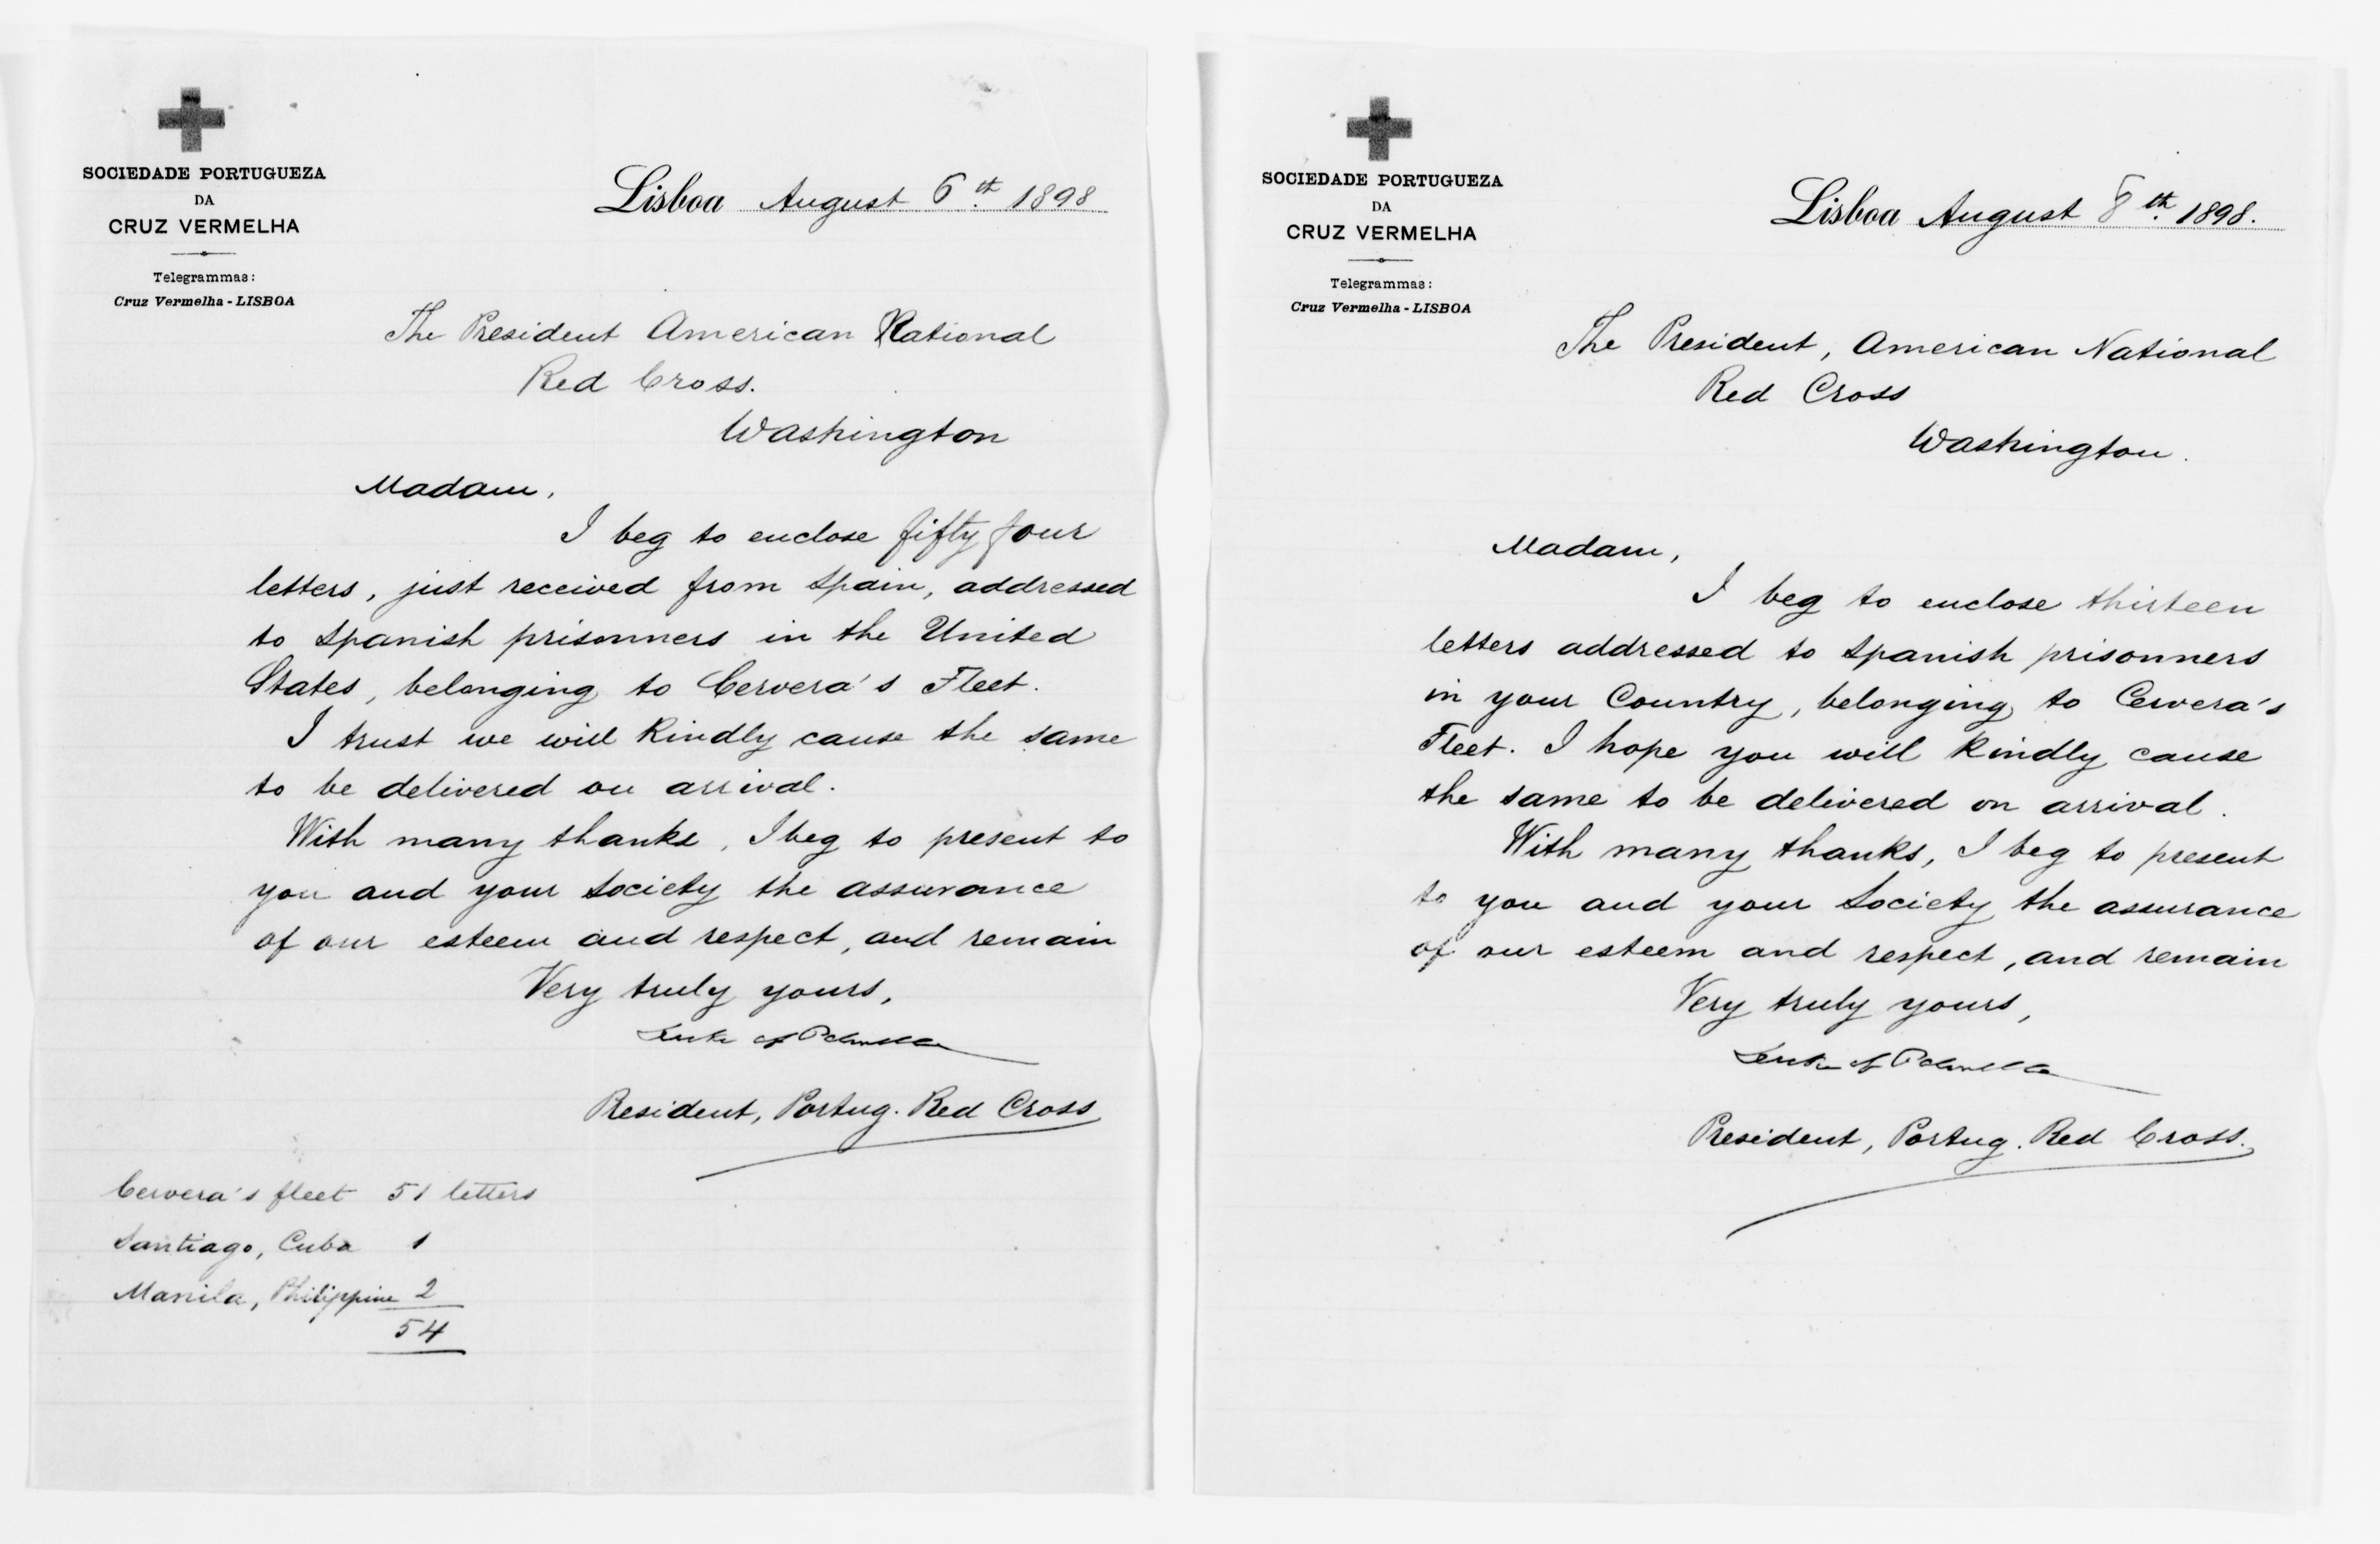 SOCIEDADE PORTUGUEZA
DA
CRUZ VERMELHA
Telegrammas:
Cruz Vermelha - LISBOA
Lisboa August 6th. 1898
The President American National
Red Cross.
Washington
Madam,
I beg to enclose fifty four
letters, just received from Spain, addressed
to Spanish prisonners in the United
States, belonging to Cervera's Fleet.
I trust we will kindly cause the same
to be delivered on arrival.
With many thanks, I beg to present to
you and your Society the assurance
of our esteem and respect, and remain
Very truly yours,
Duke of Palmella
President, Portug. Red Cross
Cervera's fleet 51 letters
Santiago, Cuba 1
Manila, Philippine 2
54
SOCIEDADE PORTUGUEZA
DA
CRUZ VERMELHA
Telegrammas:
Cruz Vermelha - LISBOA
Lisboa August 8th. 1898.
The President, American National
Red Cross
Washington.
Madam,
I beg to enclose thirteen
letters addressed to Spanish prisonners
in your Country, belonging to Cervera's
Fleet. I hope you will kindly cause
the same to be delivered on arrival.
With many thanks, I beg to present
to you and your Society the assurance
of our esteem and respect, and remain
Very truly yours,
Duke of Palmella
President, Portug. Red Cross.